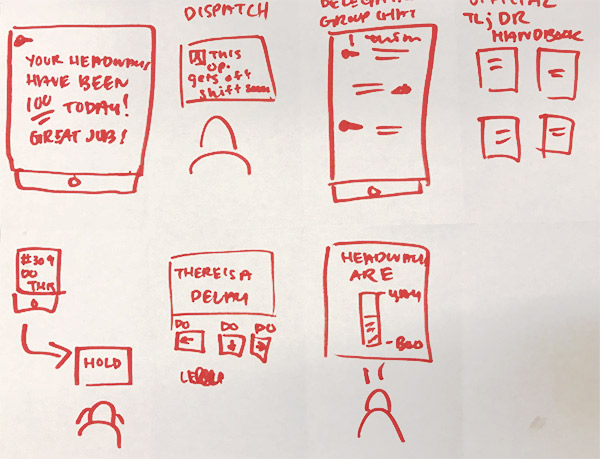 YOUR HEADWAYS
HAVE BEEN
100 TODAY!
GREAT JOB!
DISPATCH
THIS
OP.
gets off
shift soon
GROUP CHAT
TL;DR
HANDBOOK
#309
DO
THIS
HOLD
THERE IS A
DELAY
DO
DO
DO
HEADWAYS
ARE
YAY
-BOO